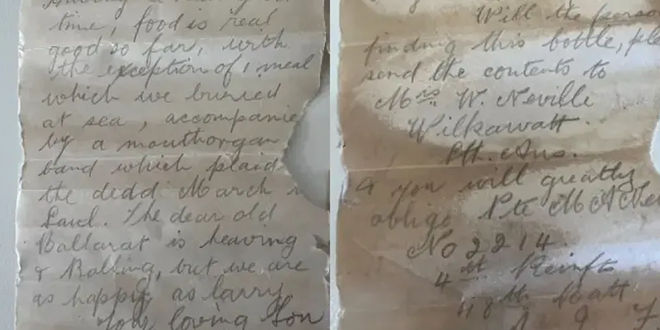 time, food is real
good so far, with
the exception of 1 meal
which we buried
at sea, accompanie
by a mouthorgan
band which plaid
the dedd March
Saul. The dear old
Ballarat is heaving
& Rolling, but we are
as happy as larry
Your loving Son
Will the perso
finding this bottle, ple
send the contents to
Mrs W. Neville
Wilkawatt.
Sth. Aus.
& you will greatly
oblige Pte M A Ne
No 2214.
4th Reinfts
48th Batt